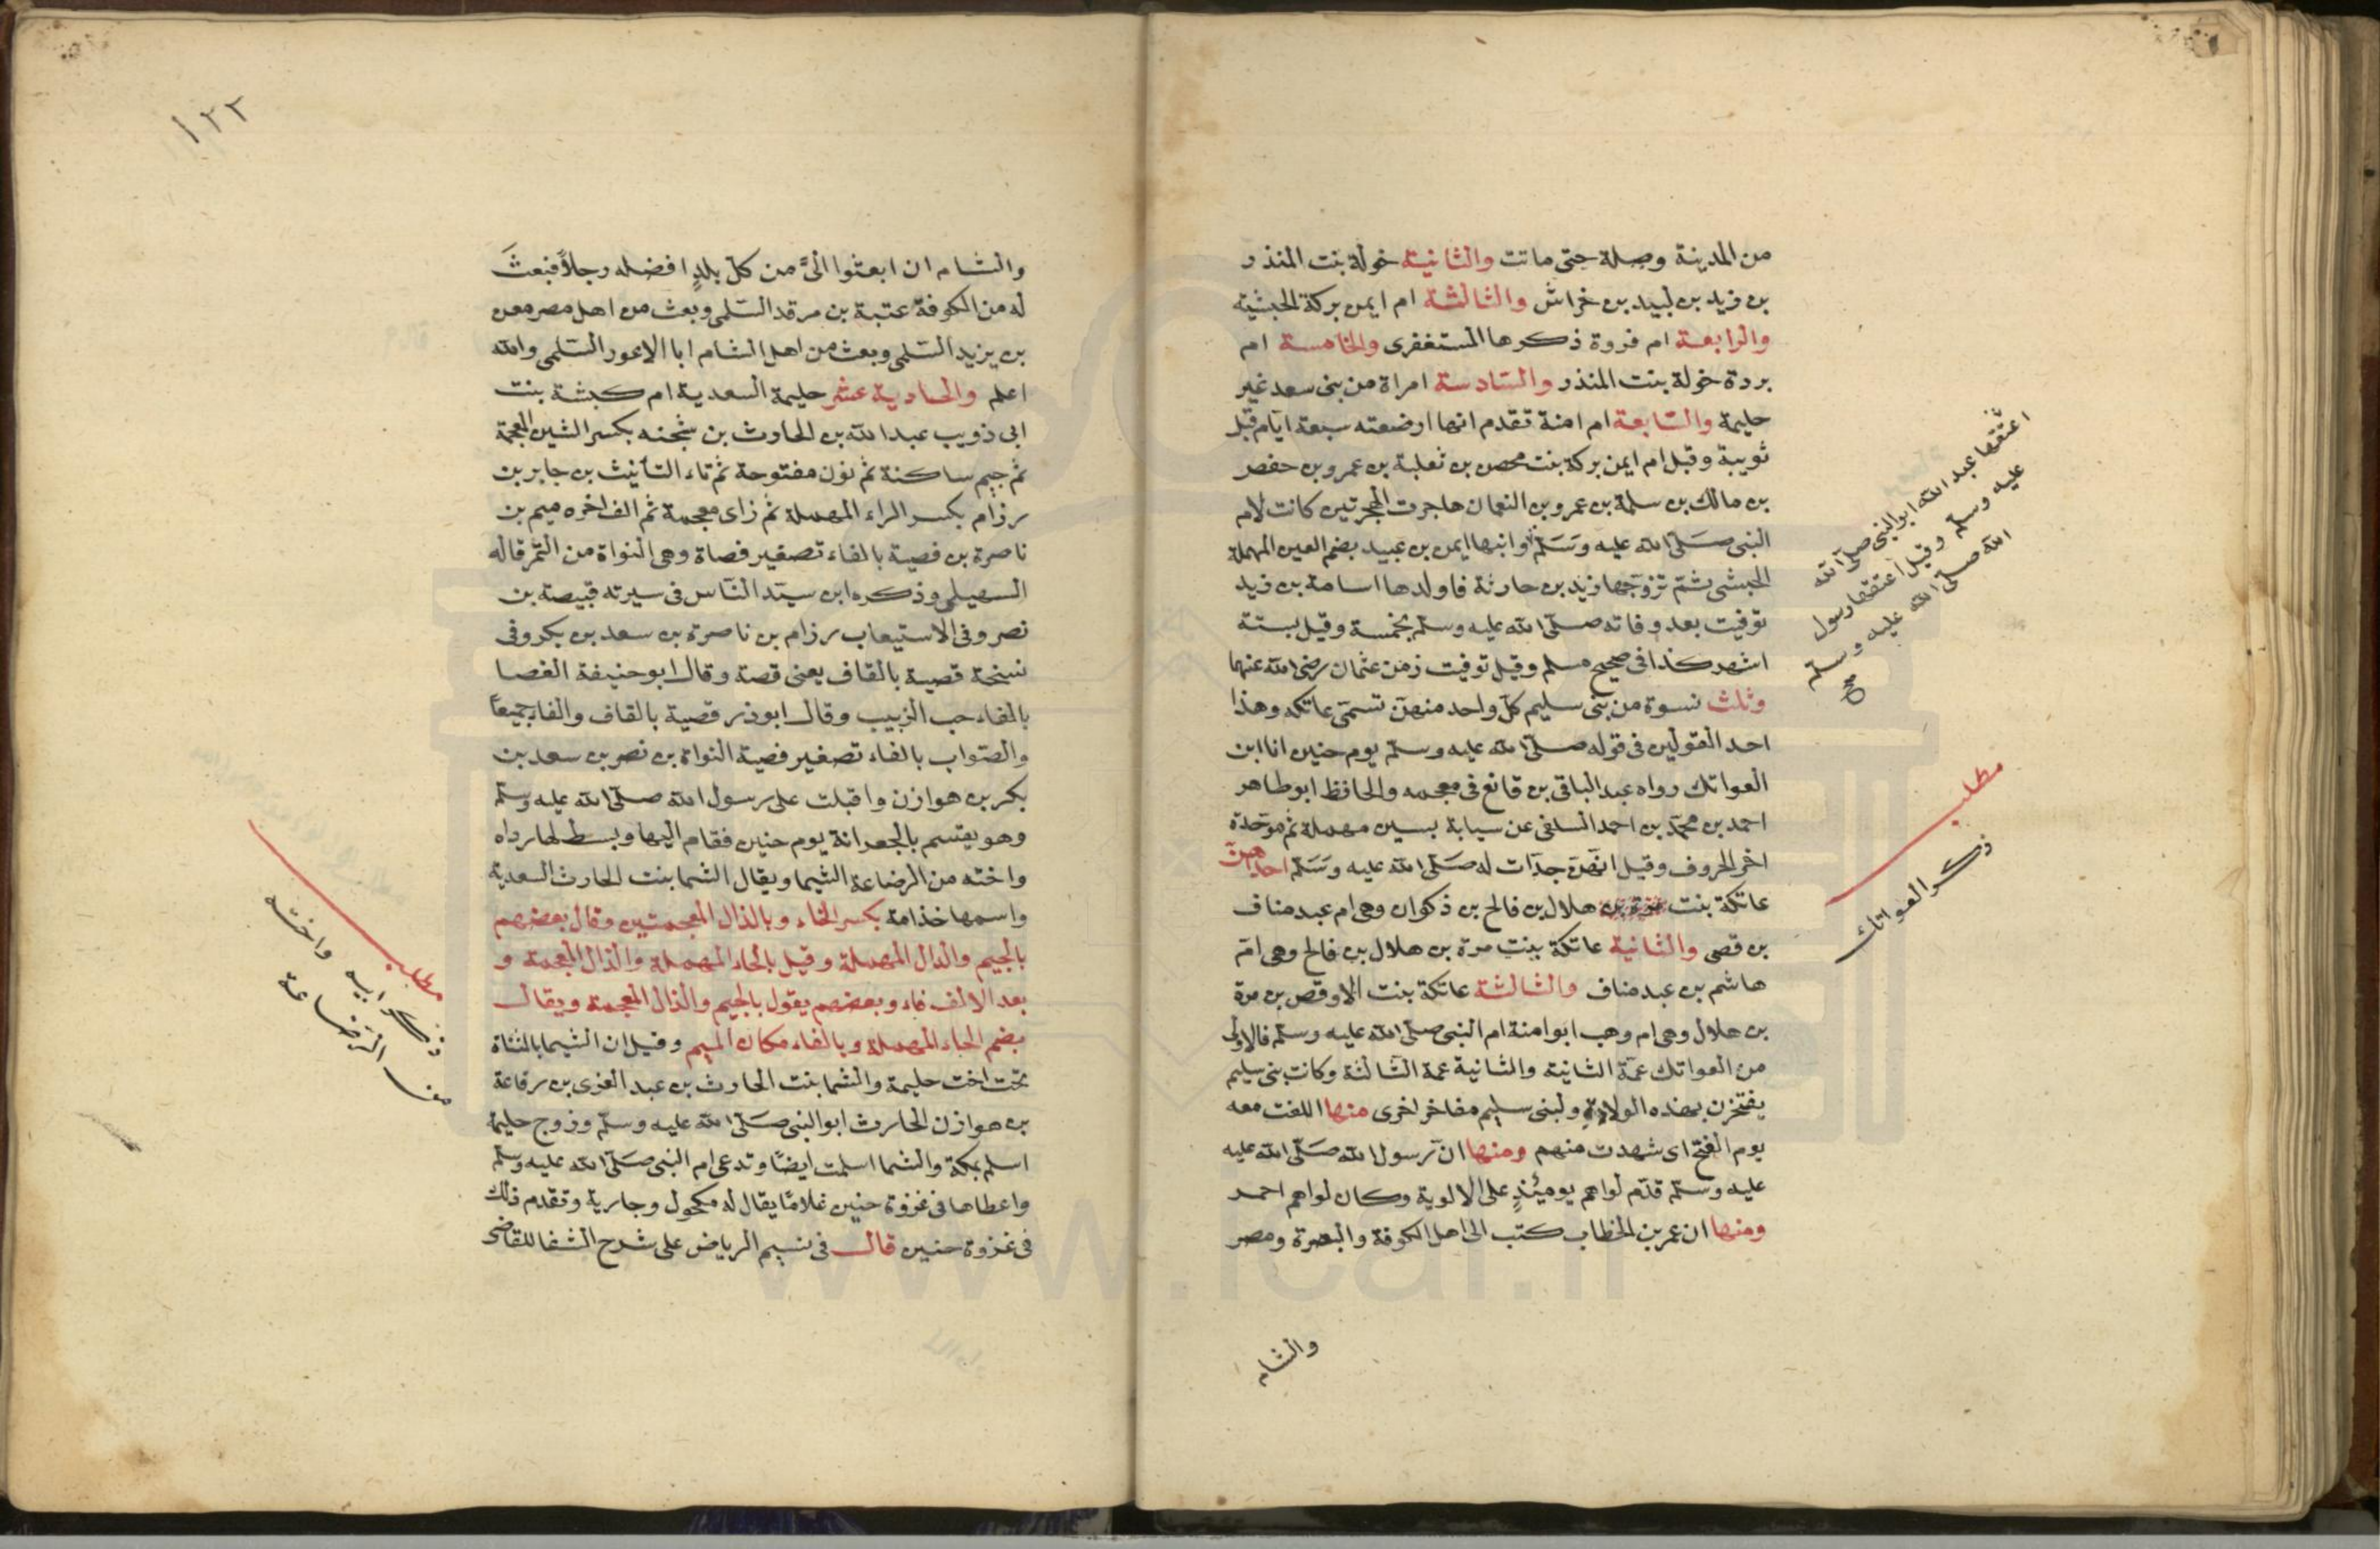 من المدينة وصلة حتى ماتت والثانية خولة بنت المنذر
بن زيد بن لبيد بن خراش والثالثة ام ايمن بركة الحبشية
والرابعة ام فروة ذكرها المستغفرى والخامسة ام
بردة خولة بنت المنذر والسادسة امراة من بنى سعد غير
حليمة والسابعة ام امنة تقدم انها ارضعته سبعة ايام قبل
ثويبة وقيل ام ايمن بركة بنت محصن بن ثعلبة بن عمرو بن حفصر
بن مالك بن سلمة بن عمرو بن النعمان هاجرت الهجرتين كانت لام
النبى صلى الله عليه وسلم وابنها ايمن بن عبيد بضم العين المهملة
الحبشى ثم تزوجها زيد بن حارثة فاولدها اسامة بن زيد
توفيت بعد وفاته صلى الله عليه وسلم بخمسة وقيل بستة
اشهر كذا فى صحيح مسلم وقيل توفيت زمن عثمان رضى الله عنهما
وثلث نسوة من بنى سليم كل واحد منهن تسمى عاتكه وهذا
احد القولين فى قوله صلى الله عليه وسلم يوم حنين انا ابن
العواتك رواه عبد الباقى بن قانع فى معجمه والحافظ ابو طاهر
احمد بن محمد بن احمد السلفى عن سيابة بسين مهملة ثم موحدة
اخر الحروف وقيل انهن جدات له صلى الله عليه وسلم احداهن
عاتكة بنت هلال بن فالح بن ذكوان وهى ام عبد مناف
بن قصى والثانية عاتكة بنت مرة بن هلال بن فالح وهى ام
هاشم بن عبد مناف والثالثة عاتكة بنت الاوقص بن مرة
بن هلال وهى ام وهب ابو امنة ام النبى صلى الله عليه وسلم فالاولى
من العواتك عمة الثانية والثانية عمة الثالثة وكانت بنى سليم
يفتخرن بهذه الولادة ولبنى سليم مفاخر اخرى منها اللفت معه
يوم الفتح اى شهدت منهم ومنها ان رسول الله صلى الله عليه
عليه وسلم قدم لواهم يومئذ على الالوية وكان لواهم احمر
ومنها ان عمر بن الخطاب كتب الى اهل الكوفة والبصرة ومصر
والشام
اعتقها عبد الله ابو النبى صلى الله
عليه وسلم وقيل اعتقها رسول
الله صلى الله عليه وسلم
صح
مطلب
ذكر العواتك
١٢٢
والشام ان ابعثوا الى من كل بلد افضله رجلا فبعث
له من الكوفة عتبة بن مرقد السلمى وبعث من اهل مصر معن
بن يزيد السلمى وبعث من اهل الشام ابا الاعور السلمى والله
اعلم والحادية عشر حليمة السعدية ام كبشة بنت
ابى ذويب عبد الله بن الحارث بن شجنه بكسر الشين المعجمة
ثم جيم ساكنة ثم نون مفتوحة ثم تاء التأنيث بن جابر بن
رزام بكسر الراء المهملة ثم زاى معجمة ثم الف اخره ميم بن
ناصرة بن فصية بالفاء تصغير فصاة وهى النواة من التمر قاله
السهيلى وذكره ابن سيد الناس فى سيرته قبيصة بن
نصر وفى الاستيعاب رزام بن ناصرة بن سعد بن بكر وفى
نسخة قصية بالقاف يعنى قصة وقال ابو حنيفة الفصا
بالفاء حب الزبيب وقال ابو ذر قصية بالقاف والفا جميعا
والصواب بالفاء تصغير فصية النواة بن نصر بن سعد بن
بكر بن هوازن واقبلت على رسول الله صلى الله عليه وسلم
وهو يقتسم بالجعرانة يوم حنين فقام اليها وبسط لها رداه
واخته من الرضاعة الشيما ويقال الشما بنت الحارث السعدية
واسمها خذامة بكسر الخاء وبالذال المعجمتين وقال بعضهم
بالجيم والدال المهملة وقيل بالحاء المهملة والذال المعجمة و
بعد الالف فاء وبعضهم يقول بالجيم والذال المعجمة ويقال
بضم الحاء المهملة وبالفاء مكان الميم وقيل ان الشيما بالمثناة
تحت اخت حليمة والشما بنت الحارث بن عبد العزى بن رفاعة
بن هوازن الحارث ابو النبى صلى الله عليه وسلم وزوج حليمة
اسلم بمكة والشما اسلمت ايضا وتدعى ام النبى صلى الله عليه وسلم
واعطاها فى غزوة حنين غلاما يقال له مكحول وجارية وتقدم ذلك
فى غزوة حنين قال فى نسيم الرياض على شرح الشفا للقاضى
مطلب
ذكر ابيه واخته
من الرضاعة
www.ical.ir